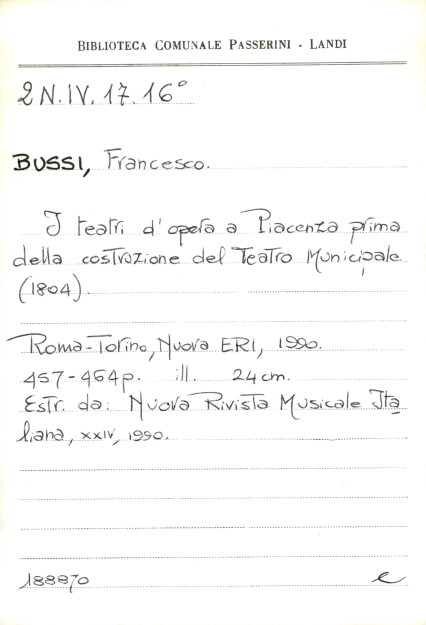 BIBLIOTECA COMUNALE PASSERINI - LANDI
2N.IV.17.16°
BUSSI, Francesco.
I teatri d'opera a Piacenza prima
della costruzione del Teatro Municipale
(1804).
Roma-Torino, Nuova ERI, 1990.
457-464p. ill. 24cm.
Estr. da: Nuova Rivista Musicale Ita
liana, XXIV, 1990.
188870 e